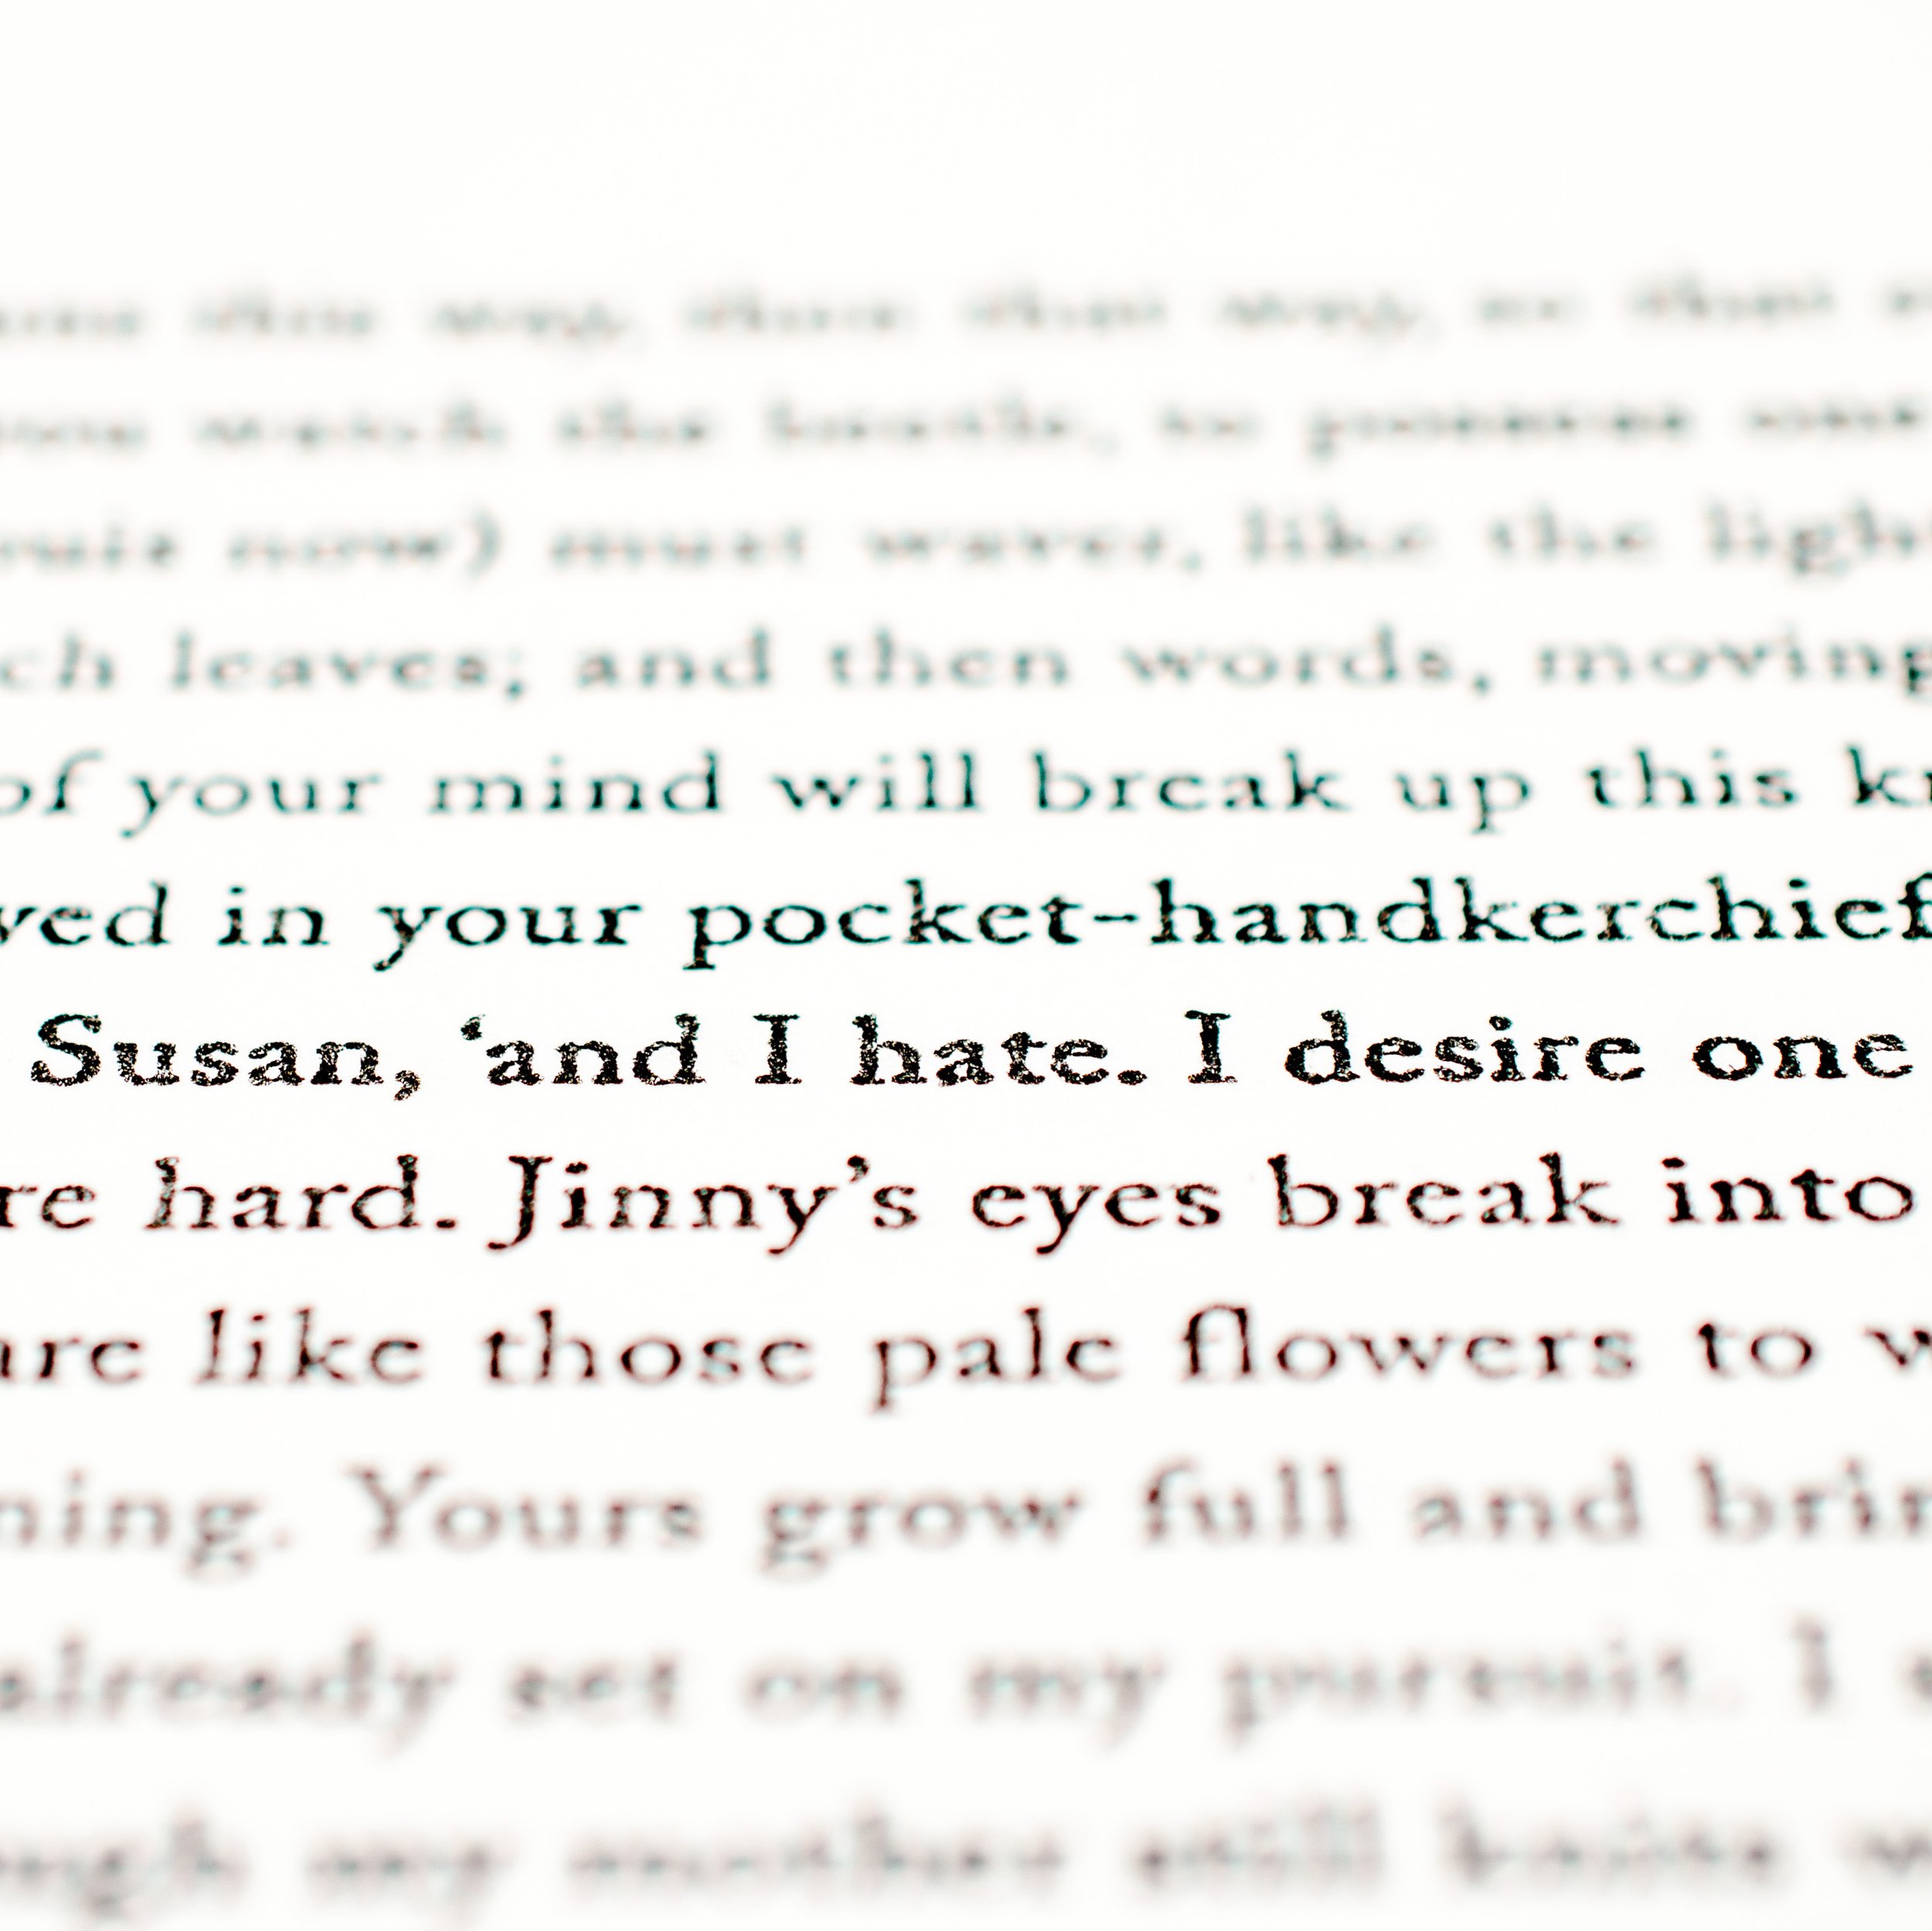 this way, then that way, so that
watch the beetle, to possess one
now) must waver, like the ligh
ch leaves; and then words, moving
of your mind will break up this
ved in your pocket-handkerchief
Susan, ‘and I hate. I desire one
re hard. Jinny’s eyes break into
are like those pale flowers to
ning. Yours grow full and brim
already set on my pursuit. I
my mother still knits